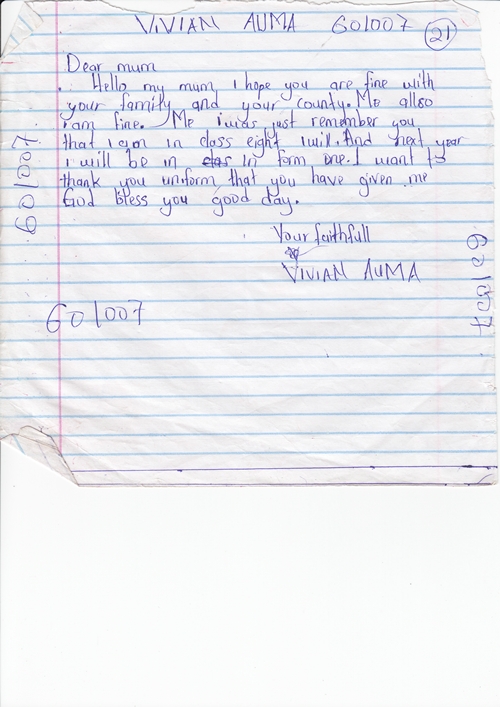 VIVIAN AUMA 601007 21
Dear mum
Hello my mum, i hope you are fine with
your family and your county. Me allso
iam fine. Me iwas just remember you
that i am in class eight iwill. And next year
i will be in clas in form one. I want to
thank you uniform that you have given me
God bless you good day.
Your faithfull
VIVIAN AUMA
601007
601007
601007